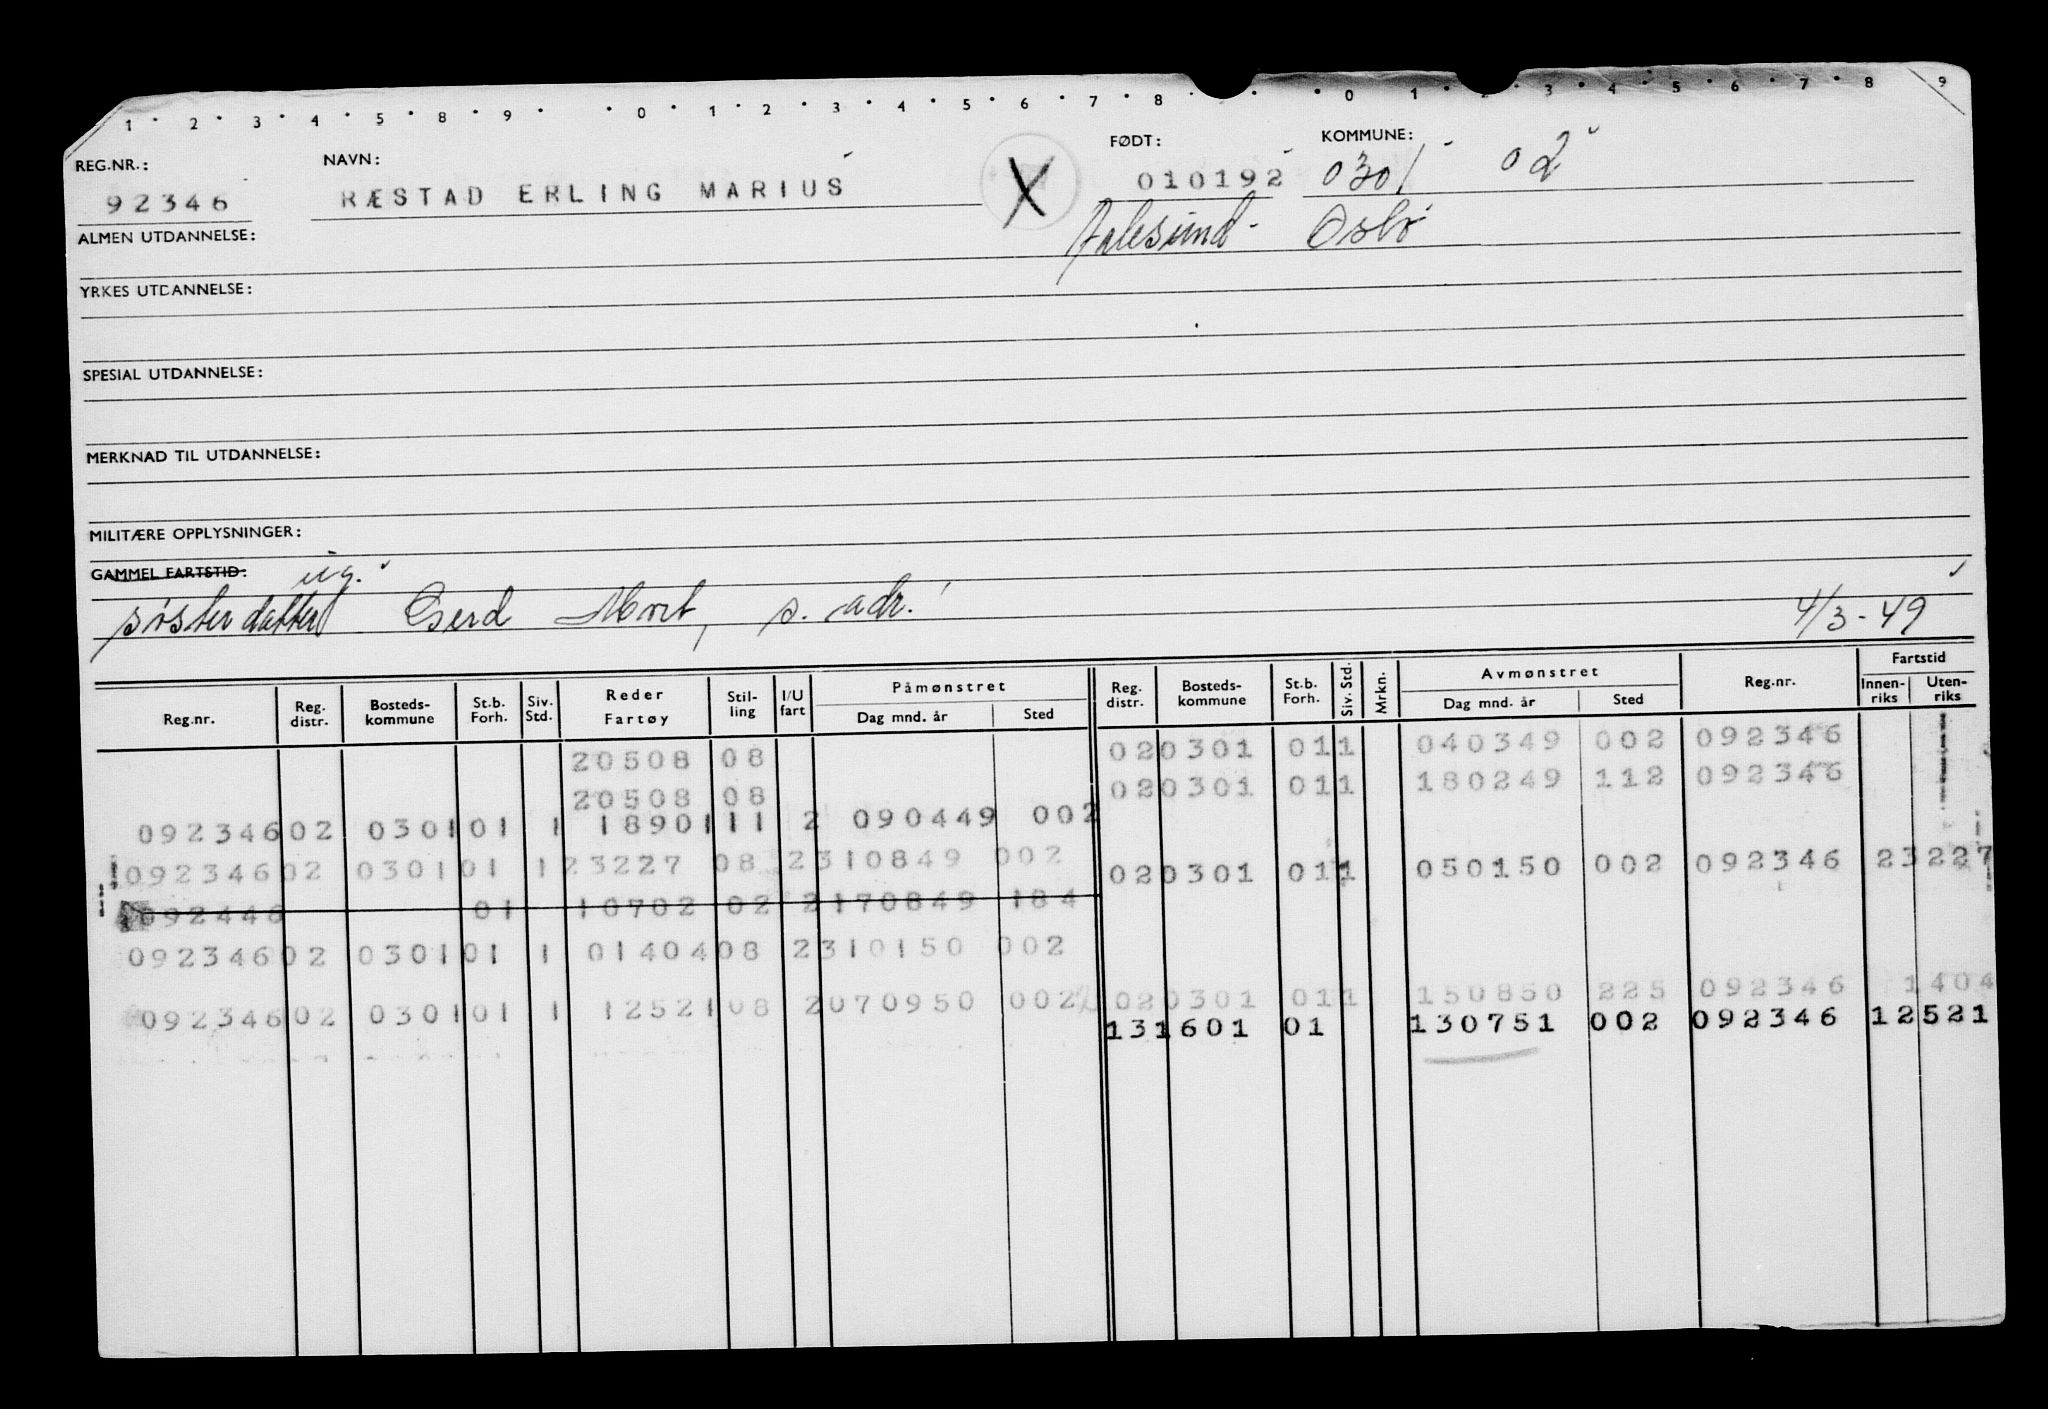 1 · 2 · 3 · 4 · 5 · 8 · 9 · · 0 · 1 · 2 · 3 · 4 · 5 · 6 · 7 · 8 · · 0 · 1 · 2 · 3 · 4 · 5 · 6 · 7 · 8 · 9
REG.NR.: NAVN: FØDT: KOMMUNE:
92346 RÆSTAD ERLING MARIUS X 010192 0301 02
ALMEN UTDANNELSE: Aalesund - Oslo
YRKES UTDANNELSE:
SPESIAL UTDANNELSE:
MERKNAD TIL UTDANNELSE:
MILITÆRE OPPLYSNINGER:
GAMMEL FARTSTID: ug.
søster datter Gerd s. adr. 4/3-49
Reg.nr. Reg. distr. Bosteds-kommune St.b. Forh. Siv. Std. Reder Fartøy Stil-ling I/U fart Påmønstret Dag mnd. år Sted Reg. distr. Bosteds-kommune St.b. Forh. Siv. Std. Mrkn. Avmønstret Dag mnd. år Sted Reg.nr. Fartstid Innen-riks Uten-riks
20508 08 020301 011 040349 002 092346
20508 08 020301 011 180249 112 092346
09234602 030101 1 18901 11 2 090449 002
09234602 030101 123227 08 2310849 002 020301 011 050150 002 092346 23227
092446 01 10702 02 2170849 184
09234602 030101 1 0140408 2310150 002
020301 011 150850 225 092346 1404
09234602 030101 1 1252108 2070950 002 131601 01 130751 002 092346 12521